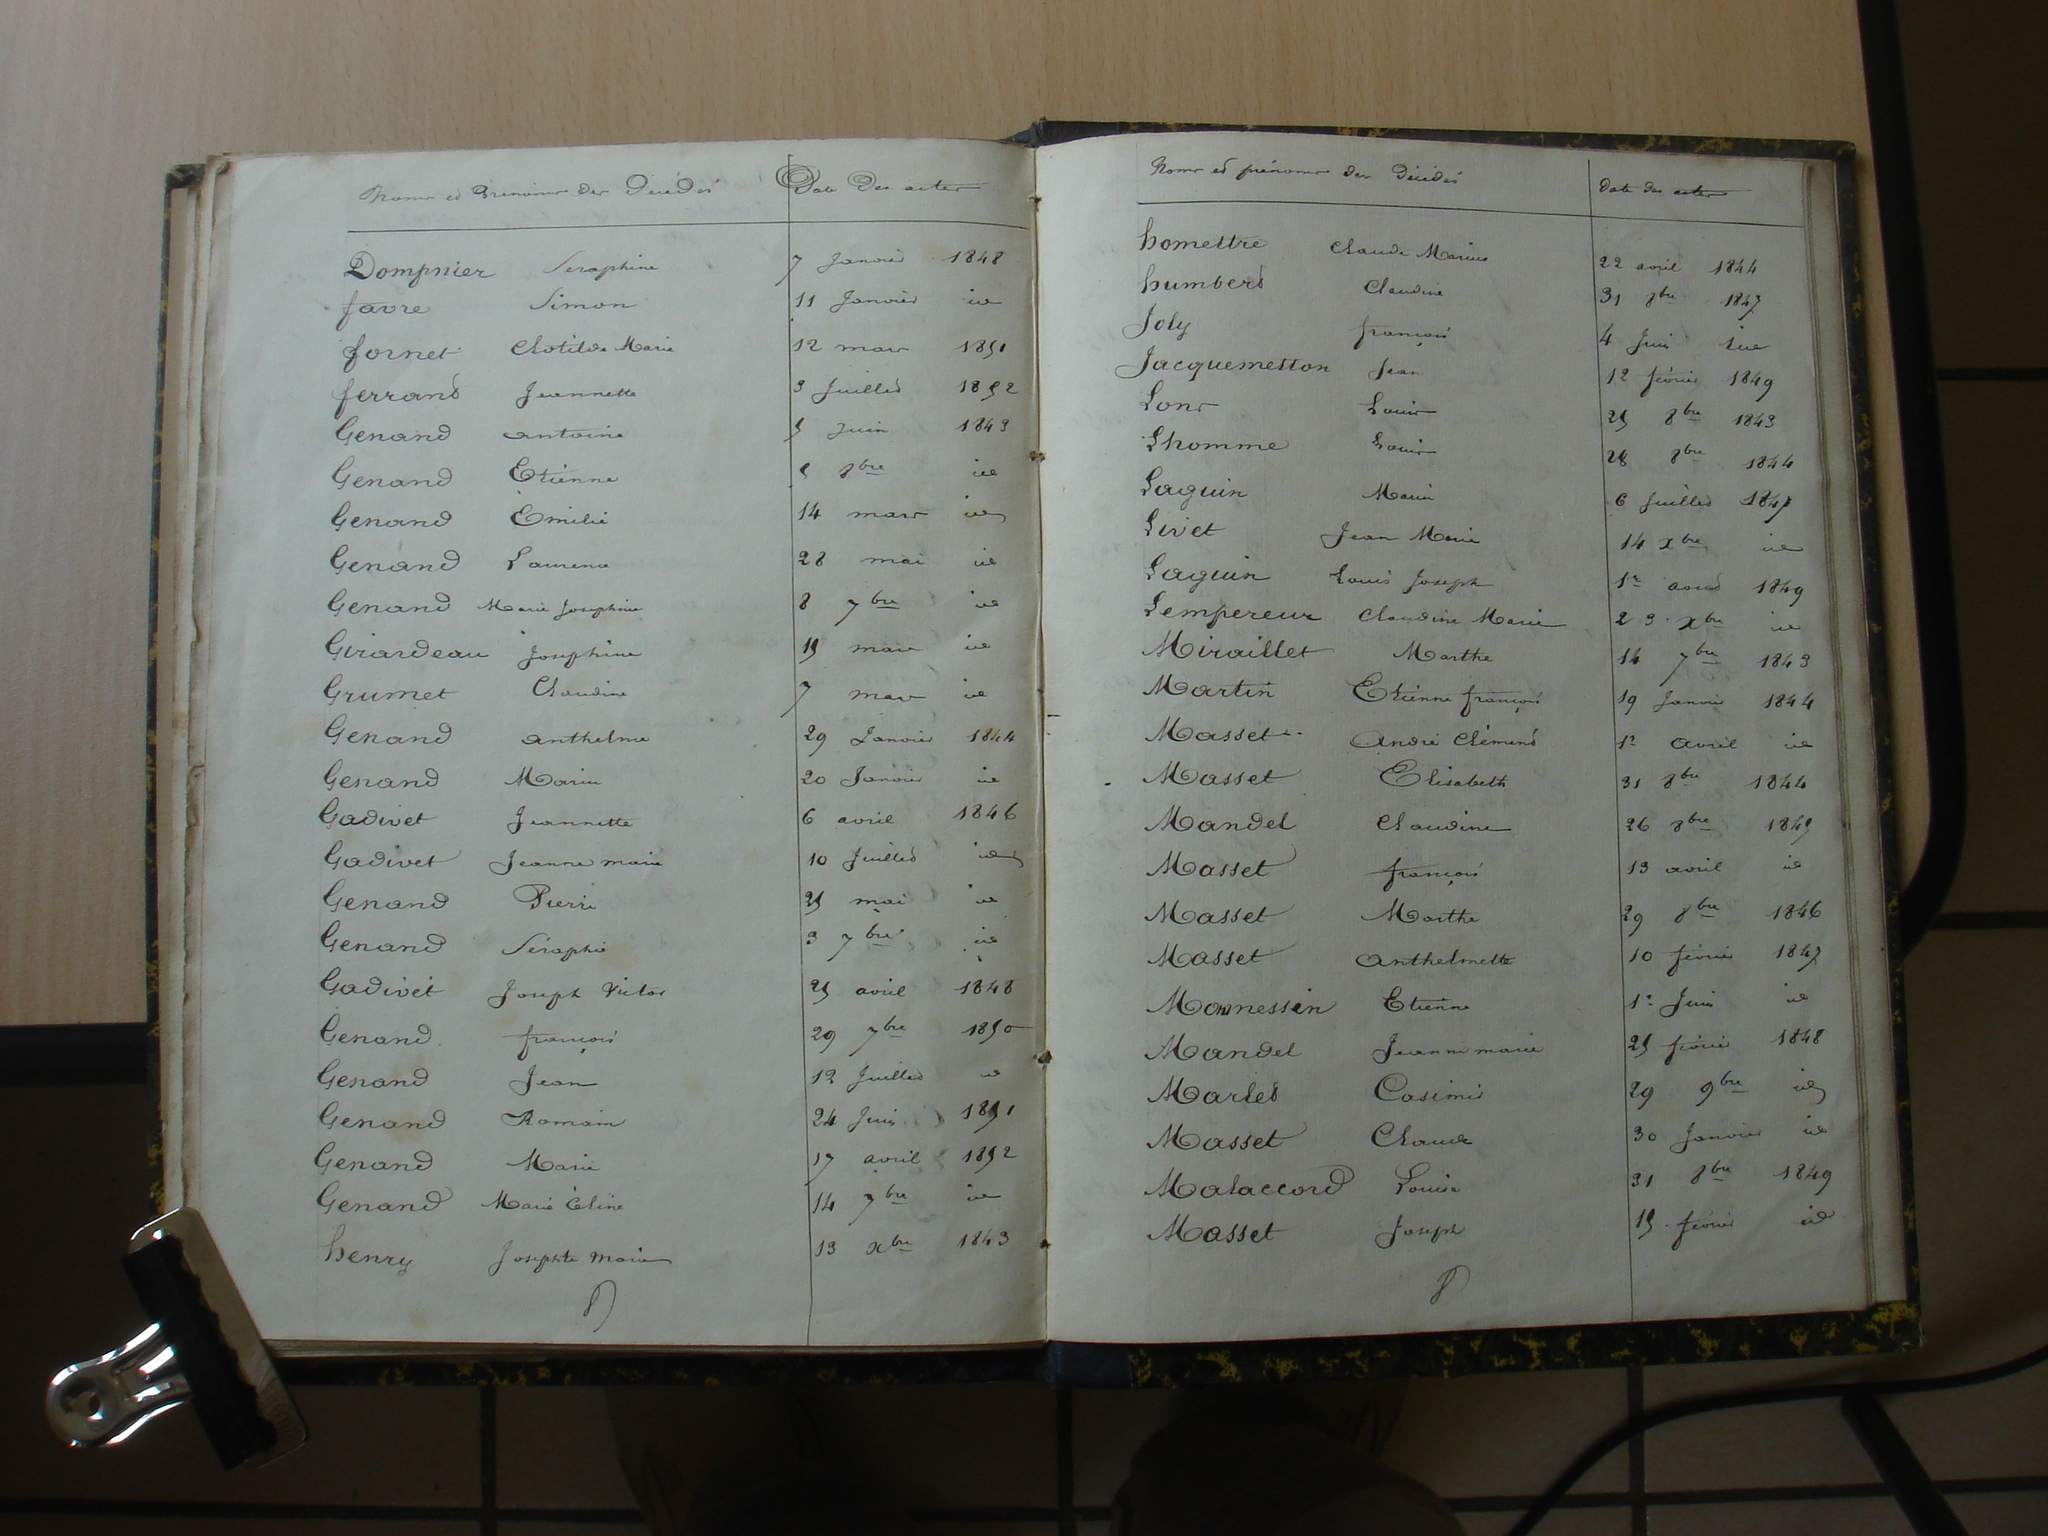 Noms et Prenoms des Décédés Date des actes
Dompnier Seraphine 7 Janvier 1848
favre Simon 11 Janvier id
fornet Clotilde Marie 12 mars 1851
ferrand Jeannette 3 Juillet 1852
Genand antoine 5 Juin 1843
Genand Etienne 8bre id
Genand Emilie 14 mars id
Genand Laurence 28 mai id
Genand Marie Josephine 8 7bre id
Girardeau Josephine 15 mars id
Grumet Claudine 7 mars id
Genand anthelme 29 Janvier 1844
Genand Marin 20 Janvier id
Gadivet Jeannette 6 avril 1846
Gadivet Jeanne marie 10 Juillet id
Genand Pierre 25 mai id
Genand Séraphie 3 7bre id
Gadivet Joseph Victor 25 avril 1848
Genand françois 29 7bre 1850
Genand Jean 12 Juillet id
Genand Romain 24 Juin 1851
Genand Marie 17 avril 1852
Genand Marie Eline 14 7bre id
henry Josephte Marie 13 xbre 1843
Noms et prénoms des Décédés Date des actes
homettre Claude Marius 22 avril 1844
humbert Claudine 31 8bre 1847
Joly françois 4 Juin id
Jacquemetton Jean 12 février 1849
Lons Louis 25 8bre 1843
Lhomme Louis 28 8bre 1844
Laguin Marin 6 Juillet 1847
Livet Jean Marie 14 xbre id
Laguin Louis Joseph 1er aout 1849
Lempereur Claudine Marie 23 xbre id
Miraillet Marthe 14 7bre 1843
Martin Etienne françois 19 Janvier 1844
Masset André Clément 1er avril id
Masset Elisabeth 31 8bre 1844
Mandel Claudine 26 8bre 1845
Masset françois 13 avril id
Masset Marthe 29 8bre 1846
Masset anthelmette 10 février 1847
Monnessin Etienne 1er Juin id
Mandel Jeanne marie 25 février 1848
Marlet Casimir 29 9bre id
Masset Claude 30 Janvier id
Malaccord Louise 31 8bre 1849
Masset Joseph 15 février id